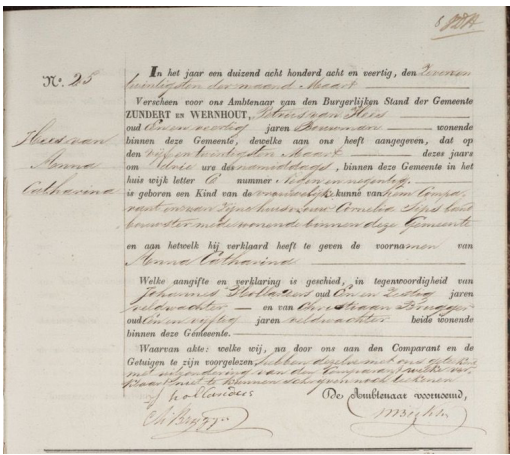 N.o 25
Hees van
Anna
Catharina
In het jaar een duizend acht honderd acht en veertig, den Zeven en
twintigsten der maand Maart
Verscheen voor ons Ambtenaar van den Burgerlijken Stand der Gemeente
ZUNDERT EN WERNHOUT, Petrus van Hees
oud Een en veertig jaren Bouwman wonende
binnen deze Gemeente, dewelke aan ons heeft aangegeven, dat op
den vijf en twintigsten Maart dezes jaars
om drie ure des namiddags, binnen deze Gemeente in het
huis wijk letter C nummer Zeven en negentig
is geboren een Kind van de vrouwelijke kunne van hem Compa
rant en van zijne huisvrouw Cornelia
bouwster mede wonende binnen deze Gemeente
en aan hetwelk hij verklaard heeft te geven de voornamen van
Anna Catharina
Welke aangifte en verklaring is geschied, in tegenwoordigheid van
Johannes Hollanders oud Een en Zestig jaren
veldwachter en van Christiaan Brugger
oud Een en vijftig jaren veldwachter beide wonende
binnen deze Gemeente.
Waarvan akte: welke wij, na door ons aan den Comparant en de
Getuigen te zijn voorgelezen, hebben dezelve met ons geteekend
met uitzondering van den Comparant welke ver
klaart niet te kunnen schrijven noch teekenen
J hollanders
De Ambtenaar voornoemd,